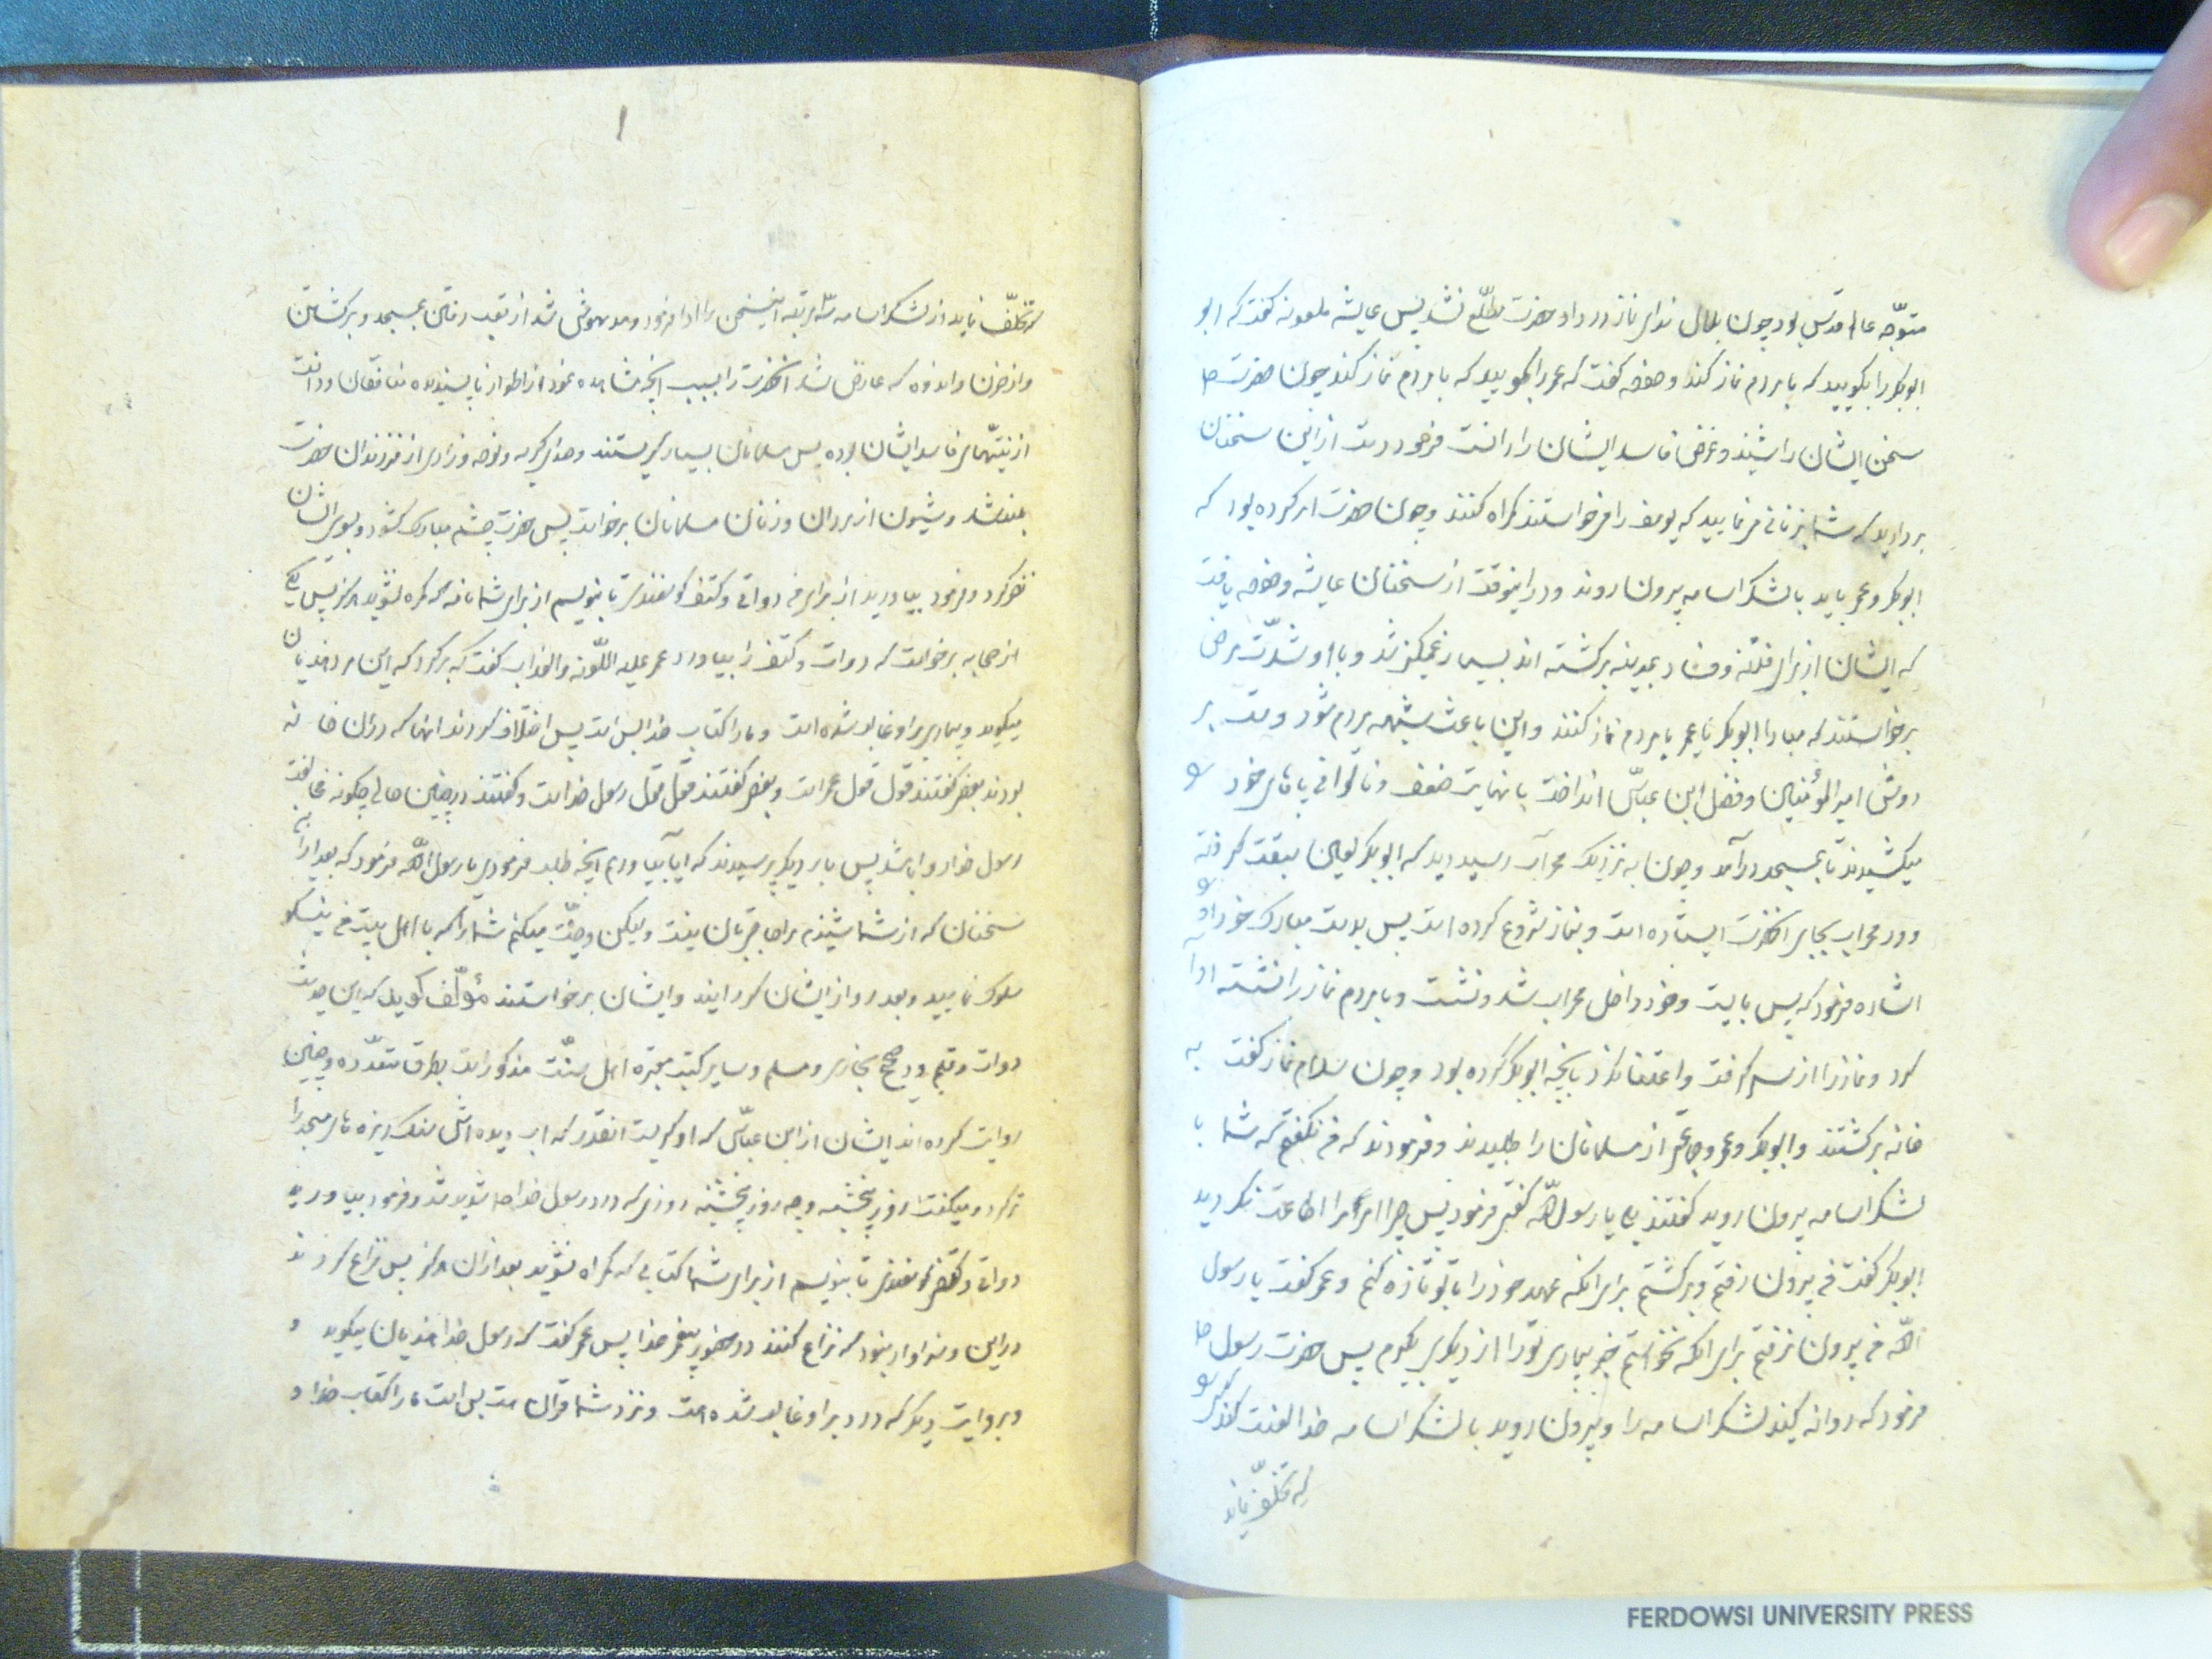 متوجّه عالم قدس بود چون بلال ندای نماز در داد حضرت مطلّع نشد پس عایشه ملعونه گفت که ابو
ابوبکر را بگویید که با مردم نماز کند و حفصه گفت که عمر را بگویید که با مردم نماز کند چون حضرت ص
سخن ایشان را شنید و غرض فاسد ایشان را دانست فرمود دست از این سخنان
بردارید که شما بزنانی میمانید که یوسف را میخواستند گمراه کنند و چون حضرت امر کرده بود که
ابوبکر و عمر باید با لشکر اسامه بیرون روند و در اینوقت از سخنان عایشه و حفصه یافت
که ایشان از برای فتنه و فساد بمدینه برگشته اند بسیار غمگین شد و با او شدّت مرض
برخواستند که مبادا ابوبکر یا عمر با مردم نماز کنند و این باعث شبهه مردم شود و دست بر
دوش امیر المؤمنین و فضل ابن عباّس انداخت با نهایت ضعف و ناتوانی پاهای خود را
میکشیدند تا بمسجد درآمد و چون به نزدیک محراب رسید دید که ابوبکر لعین سبقت گرفته
و در محراب بجای آنحضرت ایستاده است و بنماز شروع کرده است پس بدست مبارک خود او را
اشاره فرمود که پس بایست و خود داخل محراب شد و نشست و با مردم نماز را نشسته ادا
کرد و نماز را از سر گرفت و اعتنا نکرد بانچه ابوبکر کرده بود و چون سلام نماز گفت به
خانه برگشتند و ابوبکر و عمر و جماعتی از مسلمانان را طلبیدند و فرمودند که من نگفتم که شما با
لشکر اسامه بیرون روید گفتند بلی یا رسول الله گفتی فرمود پس چرا امر مرا اطاعت نکردید
ابوبکر گفت من بیرون رفتم و برگشتم برای انکه عهد خود را با تو تازه کنم و عمر گفت یا رسول
اللّه من بیرون نرفتم برای انکه نخواستم خبر بیماری تو را از دیگری بگیرم پس حضرت رسول ص
فرمود که روانه کنید لشکر اسامه را و بیرون روید با لشکر اسامه خدا لعنت کند کسی را
که تخلّف نماید
که تخلّف نماید از لشکر اسامه سه مرتبه اینسخن را ادا فرمود و مدهوش شد از تعب رفتن بمسجد و برگشتن
و از حزن و اندوه که عارض شد آنحضرت را بسبب آنچه مشاهده نمود از اطوار ناپسندیده منافقان و دانست
از نیتهای فاسد ایشان بوده پس مسلمانان بسیار گریستند و صدای گریه و نوحه و زاری از فرزندان حضرت
بلند شد و شیون از مردان و زنان مسلمانان برخواست پس حضرت چشم مبارک گشود و بسوی ایشان
نظر کرد و فرمود بیاورید از برای من دواتی و کتف گوسفندی تا بنویسم از برای شما نامه که گمراه نشوید هرگز پس یکی
از صحابه برخواست که دوات و کتف را بیاورد عمر علیه اللّعنه والعذاب گفت که برگرد که این مرد هذیان
میگوید و بیماری بر او غالب شده است و ما را کتاب خدا بس است پس اختلاف کردند آنها که در آن خانه
بودند بعضی گفتند قول قول عمر است و بعضی گفتند قول قول رسول خداست و گفتند در چنین حالی چگونه مخالفت
رسول خدا روا باشد پس بار دیگر پرسیدند که آیا بیاوریم آنچه طلب فرمودی یا رسول اللّه فرمود که بعد از این
سخنان که از شما شنیدم مرا حاجتی بان نیست ولیکن وصیّت میکنم شما را که با اهل بیت من نیکو
سلوک نمایید و بعد رو از ایشان گردانید و ایشان برخواستند مؤلّف گوید که این حدیث
دوات و قلم در صحیح بخاری و مسلم و سایر کتب معتبره اهل سنّت مذکور است بطرق متعدّده و چنین
روایت کرده اند ایشان از ابن عباّس که او گریست انقدر که اب دیده اش سنگ ریزه های مسجد را
تر کرد و میگفت روز پنجشنبه و چه روز پنجشنبه روزی که درد رسول خدا ص شدید شد و فرمود بیاورید
دوات و کتف گوسفندی تا بنویسم از برای شما کتابی که گمراه نشوید بعد از آن هرگز پس نزاع کردند
در این و سزاوار نبود که نزاع کنند در حضور پیغمبر خدا پس عمر گفت که رسول خدا هذیان میگوید و
و بروایت دیگر که درد بر او غالب شده است و نزد شما قرآن هست بس است ما را کتاب خدا و
FERDOWSI UNIVERSITY PRESS